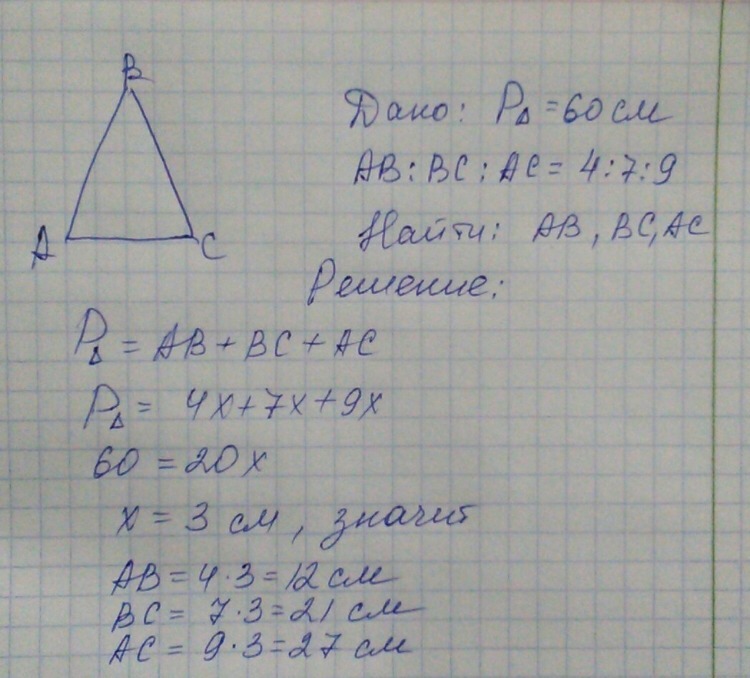 B
A
C
Дано: P△ = 60 см
AB : BC : AC = 4 : 7 : 9
Найти: AB, BC, AC
Решение:
P△ = AB + BC + AC
P△ = 4x + 7x + 9x
60 = 20x
x = 3 см, значит
AB = 4 · 3 = 12 см
BC = 7 · 3 = 21 см
AC = 9 · 3 = 27 см